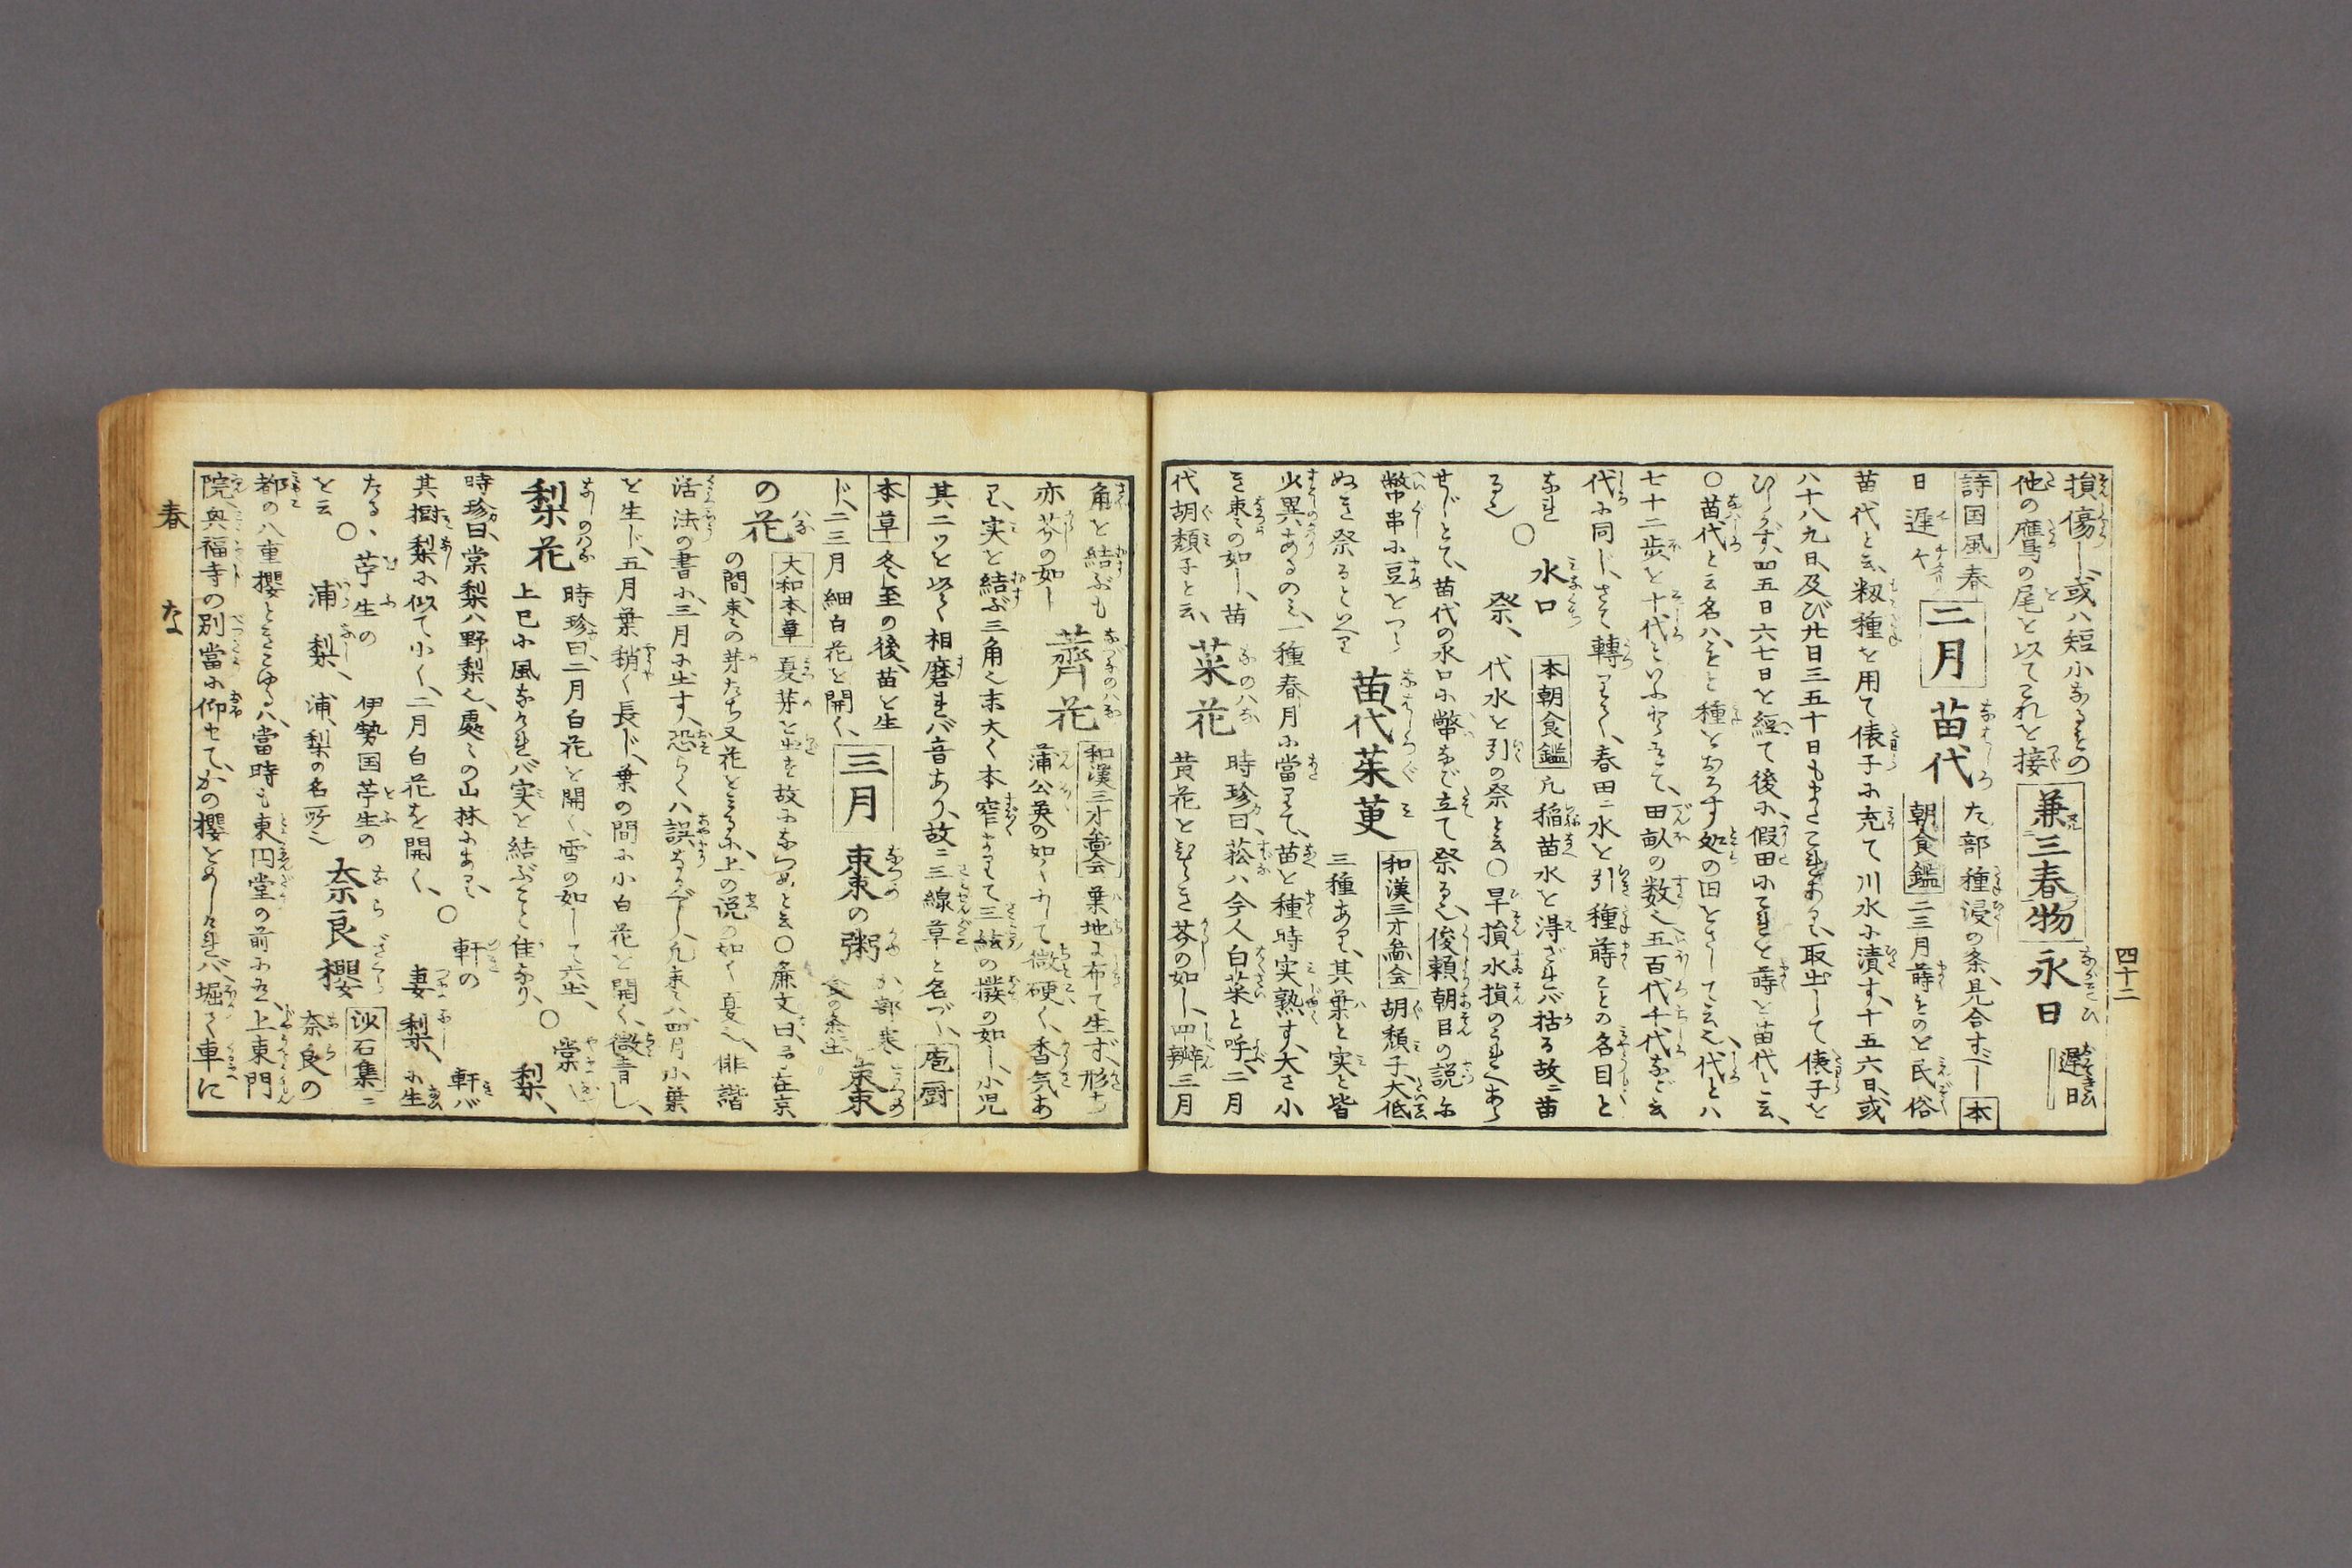 四十二
損傷し、或ハ短小なるもの
他の鷹の尾を以てこれを接 兼三春物 永日 遅日
詩国風 春
日遅々 二月 苗代 た部種浸の条、見合すべし 本
朝食鑑 二三月蒔ものを民俗
苗代と云、籾種を用て俵子に充て川水に漬す、十五六日、或
八十八九日、及び廿日三五十日もまたこれあり、取出して俵子を
ひらかず、四五日六七日を経て後に、假田にこれを蒔を苗代と云、
〇苗代と云名ハ、もと種をおろす処の田をさして云也、代とハ
七十二歩を十代といふよりそへて、田畝の数也、五百代千代など云
代に同じ、さて轉りて、春田ニ水を引種蒔ことの名目と
なれるなり 〇水口祭、 本朝食鑑 凡稲苗水を得ざれバ枯る故ニ苗
代水を引の祭と云〇旱損水損のうれへあら
せじとて、苗代の水口に幣など立て祭る也、俊頼朝臣の説に
幣串に豆をつら
ぬき祭るといへり 苗代茱萸 和漢三才圖会 胡頽子、大低
三種あり、其葉と実と皆
少異あるのミ、一種春月に當りて、苗を種時実熟す、大さ小
き棗の如し、苗
代胡頽子と云、 菜花 時珍曰、菘ハ今人白菜と呼、二月
黄花をひらき芥の如し、四瓣三月
角を結ぶも
亦芥の如し 薺花 和漢三才圖会 葉地に布て生ず、形ち
蒲公英の如くにして微硬く、香気あ
り、実を結ぶ三角也末大く本窄まりて三絃の撥の如し、小児
其二ツを以て相磨れバ音あり、故ニ三線草と名づく、 庖厨
本草 冬至の後、苗を生
じ、二三月細白花を開く、 三月 棗の粥 か部寒食の条出 棗
の花 大和本草 夏芽を出す故になつめと云〇廉文曰、予在京
の間、棗の芽たち又花をミるに、上の説の如く夏也、俳諧
活法の書に、三月に出す、恐らくハ誤なるべし、凡棗ハ四月小葉
を生じ、五月葉稍く長じ、葉の間に小白花を開く、微青し、
梨花 時珍曰、二月白花を開く、雪の如して六出、
上巳に風なけれバ実を結ぶこと佳なり、 〇棠梨、
時珍曰、棠梨ハ野梨也、處々の山林にあり、
其樹梨に似て小く、二月白花を開く、 〇軒の妻梨、 軒バ
に生
たる、 〇苧生の浦梨、 伊勢国苧生の
浦、梨の名所也
を云 奈良櫻 沙石集ニ
奈良の
都の八重櫻ときこゆるハ、當時も東円堂の前にあり、上東門
院、興福寺の別當に仰せて、かの櫻をめしけれバ、堀て車に
春 な